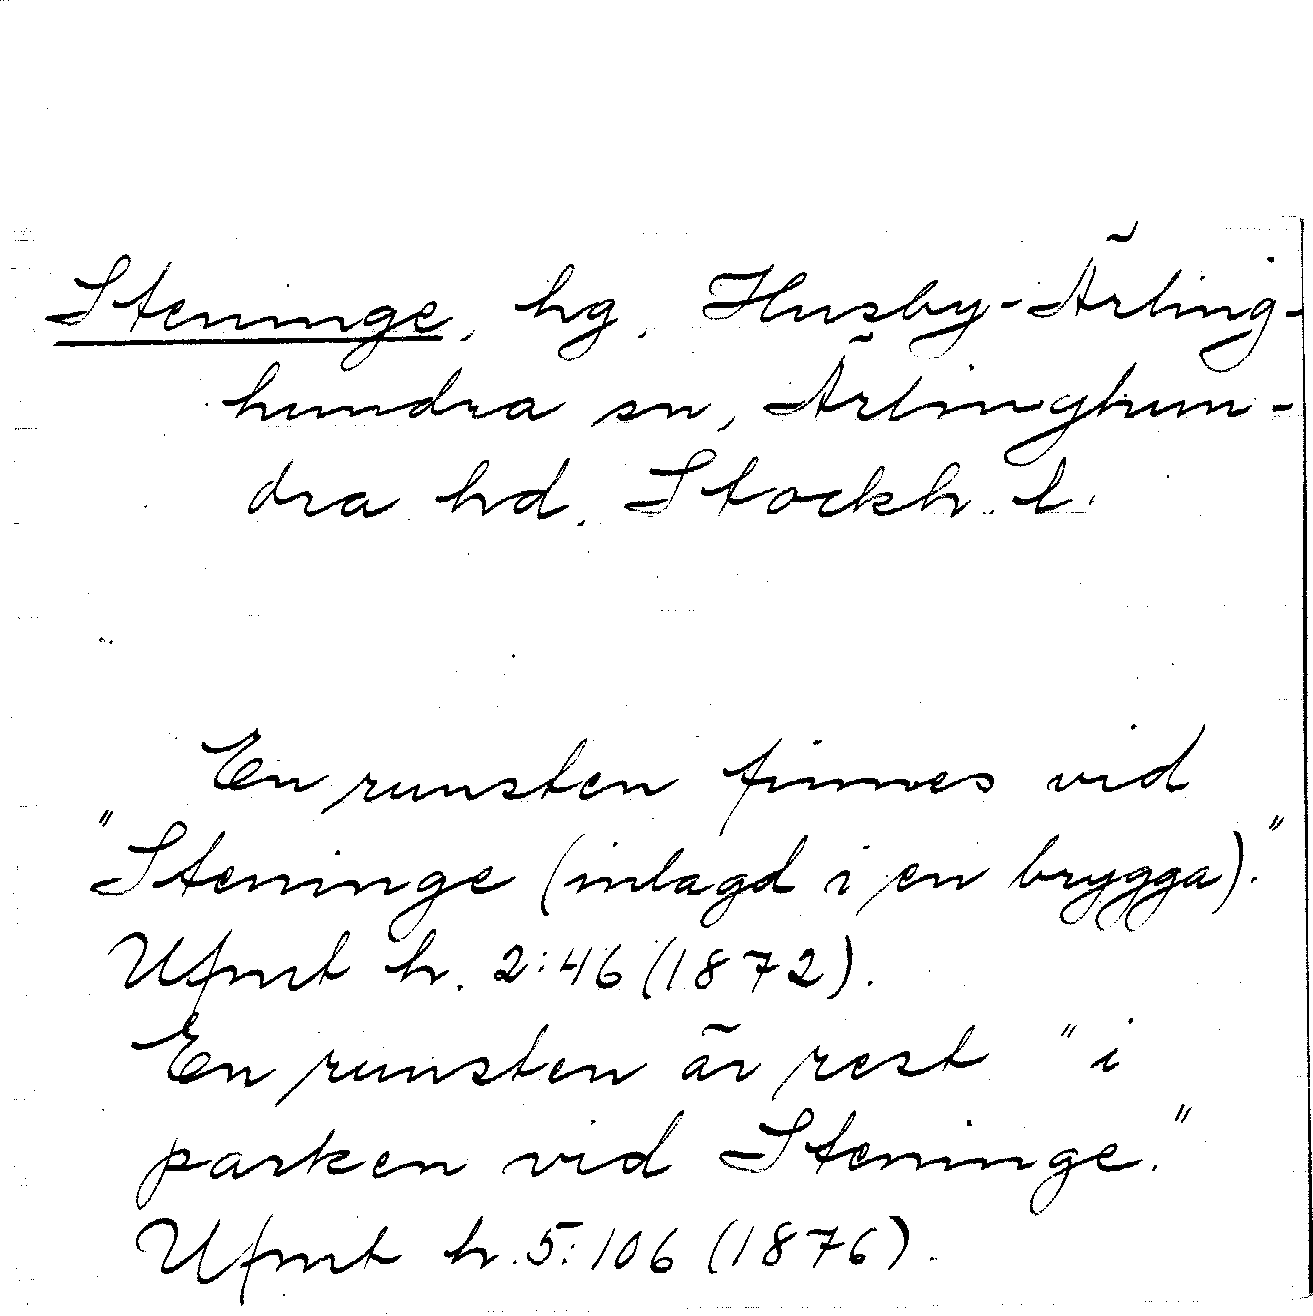 Steninge, hg, Husby-Ärling-
hundra sn, Ärlinghun-
dra hd. Stockh. l.
En runsten finnes vid
"Steninge (inlagd i en brygga)."
Ufmt h. 2:46 (1872).
En runsten är rest "i
parken vid Steninge."
Ufmt h. 5:106 (1876).